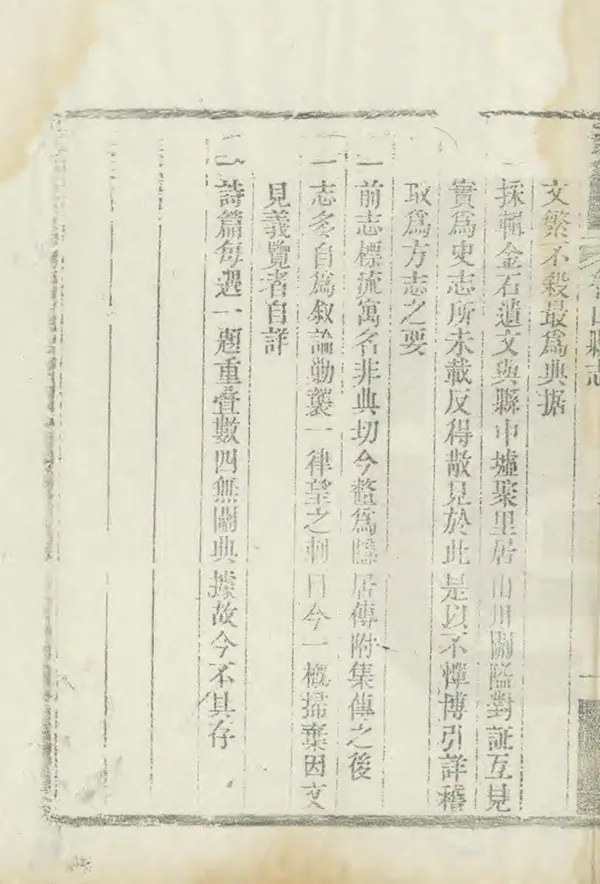 山縣志
文繁不殺最爲典据
一採輯金石遺文與縣中墟聚里居山川關隘對証互見
實爲史志所未載反得散見於此是以不憚博引詳稽
取爲方志之要
一前志標流寓名非典切今釐爲隱居傳附集傳之後
一志冬自爲叙論勦襲一律望之刺目今一概掃棄因文
見義覽者自詳
一詩篇每選一題重叠數四無關典據故今不其存